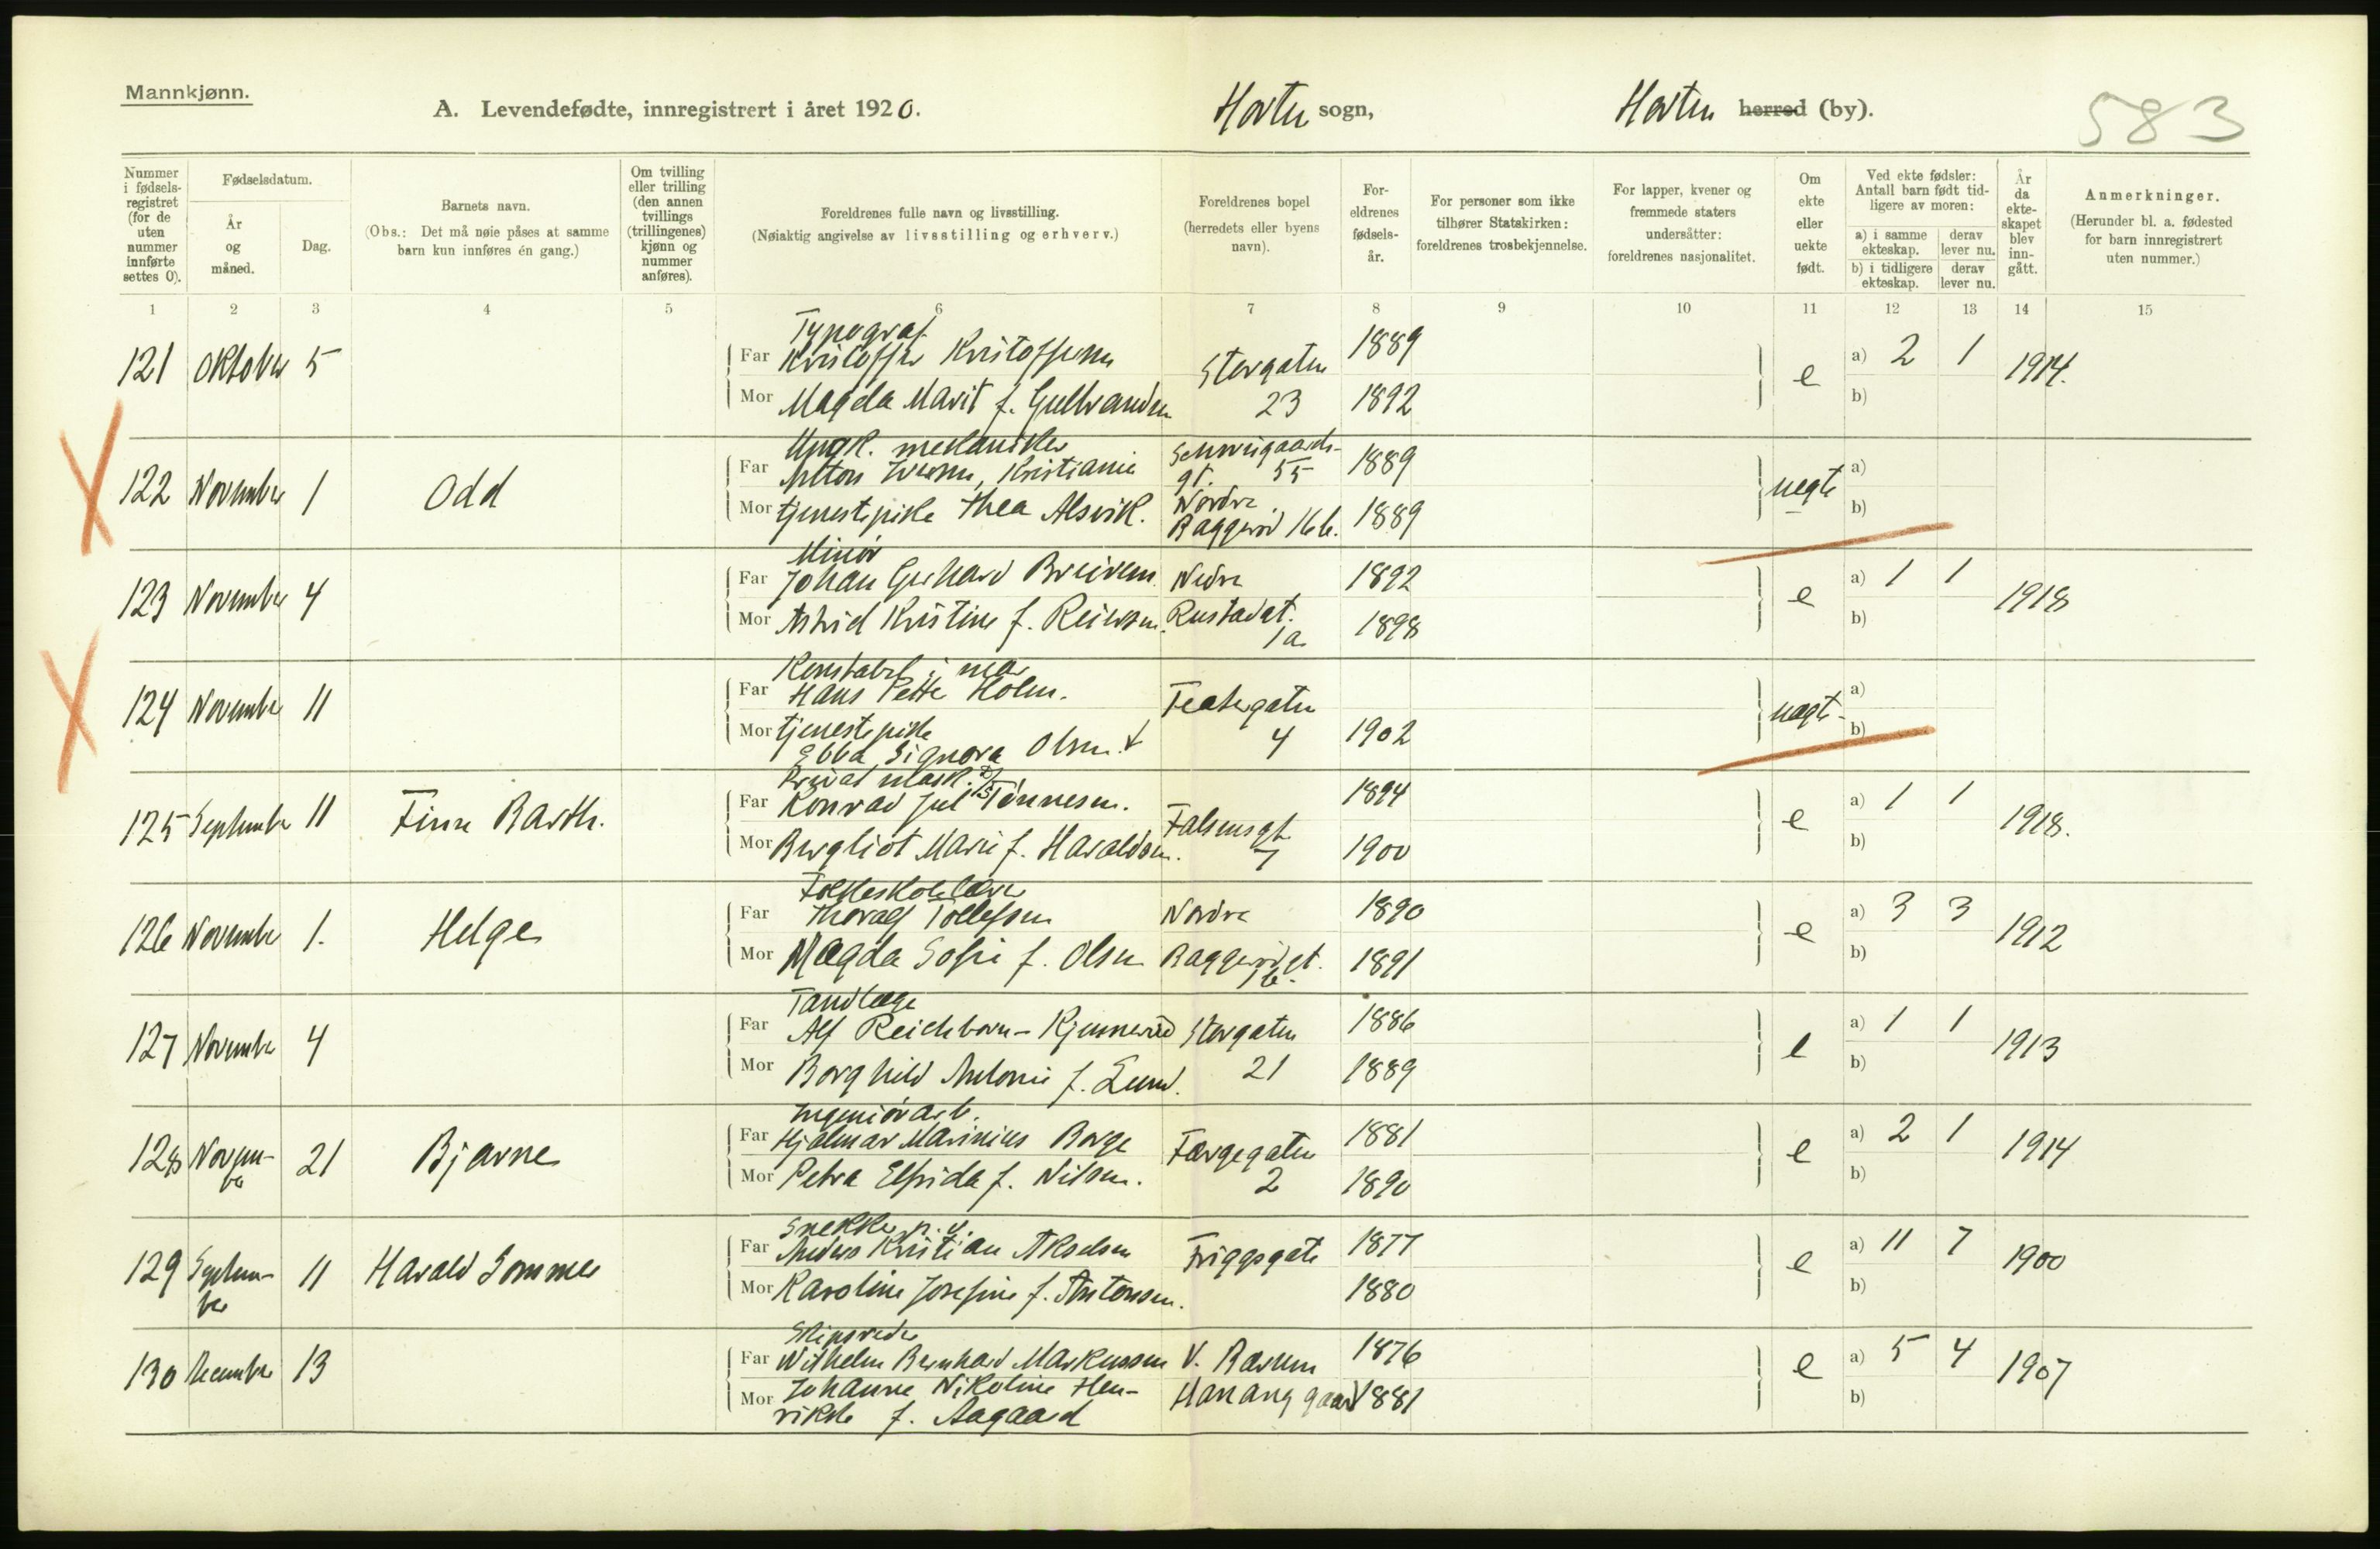 Mannkjønn.
A. Levendefødte, innregistrert i året 1920.
Horten sogn,
Horten herred (by).
583
Nummer i fødsels- registret (for de uten nummer innførte settes 0).
Fødselsdatum.
År og måned.
Dag.
Barnets navn.
(Obs.: Det må nøie påses at samme barn kun innføres én gang.)
Om tvilling eller trilling (den annen tvillings (trillingenes) kjønn og nummer anføres).
Foreldrenes fulle navn og livsstilling.
(Nøiaktig angivelse av livsstilling og erhverv.)
Foreldrenes bopel (herredets eller byens navn).
For- eldrenes fødsels- år.
For personer som ikke tilhører Statskirken: foreldrenes trosbekjennelse.
For lapper, kvener og fremmede staters undersåtter: foreldrenes nasjonalitet.
Om ekte eller uekte født.
Ved ekte fødsler: Antall barn født tid- ligere av moren:
a) i samme ekteskap. derav lever nu.
b) i tidligere ekteskap. derav lever nu.
År da ekte- skapet blev inn- gått.
Anmerkninger.
(Herunder bl. a. fødested for barn innregistrert uten nummer.)
1 2 3 4 5 6 7 8 9 10 11 12 13 14 15
Typograf
121 Oktober 5 Far Kristoffer Kristoffersen Storgaten 1889 e a) 2 1 1914.
Mor Magda Marit f. Gulbrandsen 23 1892 b)
Ungk. mekaniker Schweigaards-
122 November 1 Odd Far Anton Iversen, Kristiania gt. 55 1889 uegte a)
Mor tjenestepike Thea Alsvik. Nordre Baggerød 16b. 1889 b)
Minør
123 November 4 Far Johan Gerhard Breivem Nedre 1892 e a) 1 1 1918
Mor Astrid Kristine f. Reierson. Rustadgt. 1a 1898 b)
Konstabel i mar
124 November 11 Far Hans Petter Holm. Featergaten uegte a)
Mor tjenestepike 4 1902 b)
Ebba Signora Olsen
Privat mask.
125 September 11 Finn Barth. Far Konrad Jul Tønnesen. Falsensgt. 1894 e a) 1 1 1918.
Mor Bergliot Marie f. Haraldsen. 7 1900 b)
Folkeskolelærer
126 November 1. Helge Far Thoralf Tollefsen Nordre 1890 e a) 3 3 1912
Mor Magda Sofie f. Olsen Baggerødgt. 1b. 1891 b)
Tandlæge
127 November 4 Far Alf Reichborn-Kjennerud Storgaten 1886 e a) 1 1 1913
Mor Borghild Antonie f. Lund. 21 1889 b)
Ingeniørarb.
128 November 21 Bjarne Far Hjalmar Marinius Borge Færgegaten 1881 e a) 2 1 1914
Mor Petra Elfrida f. Nilsen. 2 1890 b)
Snekker p. v.
129 September 11 Harald Sommer Far Anders Kristian Akselsen Friggsgate 1877 e a) 11 7 1900
Mor Karoline Josefine f. Antonsen. 1880 b)
Skipsreder
130 December 13 Far Wilhelm Bernhard Markussen V. Bærum 1876 e a) 5 4 1907
Mor Johanne Nikoline Hen- Hanang gaard 1881 b)
rikke f. Aagaard